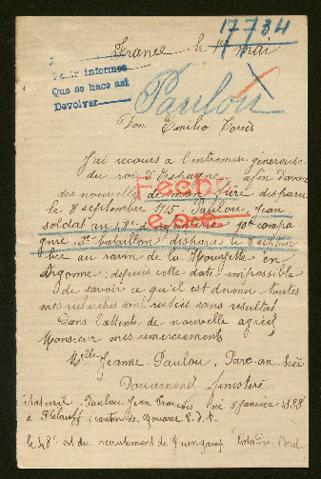 17734
France le 1er mai
Pedir informes
Que se hace así
Devolver
Paulou
Don Emilio Torrès
J'ai recours à l'entremise généreuse
du roi d'Espagne afin d'avoir
des nouvelles de mon frère disparu
le 8 septembre 1915 Paulou Jean
soldat au 10e compa
gnie 3e bataillon disparu le 8 septem
bre au ravin de la Houyette en
Argonne : depuis cette date impossible
de savoir ce qu'il est devenu toutes
mes recherches sont restées sans resultat
Dans l'attente de nouvelle agréez
Monsieur mes remerciements
Melle Jeanne Paulou, Parc-an-
Douarnenez Finistère
Paulou Jean François né 5 janvier 1888
à
le 48e est du recrutement de Guingamp Nord